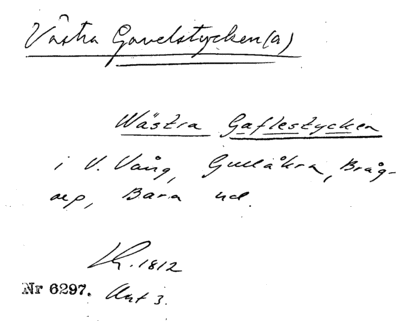 Västra Gavelstycken(a)
Wästra Gaflestycken
i V. Vång, Gullåkra, Bråg-
arp, Bara hd.
Lh. 1812
Akt 3.
Nr 6297.